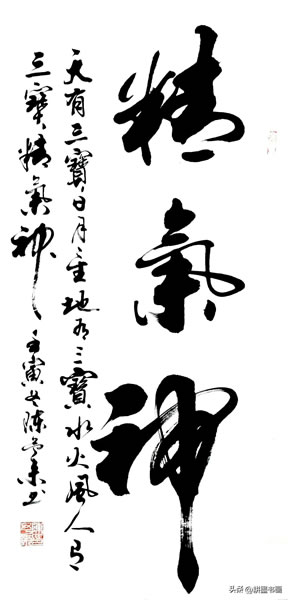 精氣神
天有三寶日月星地有三寶水火風人有
三寶精氣神 壬寅 陈 书
头条